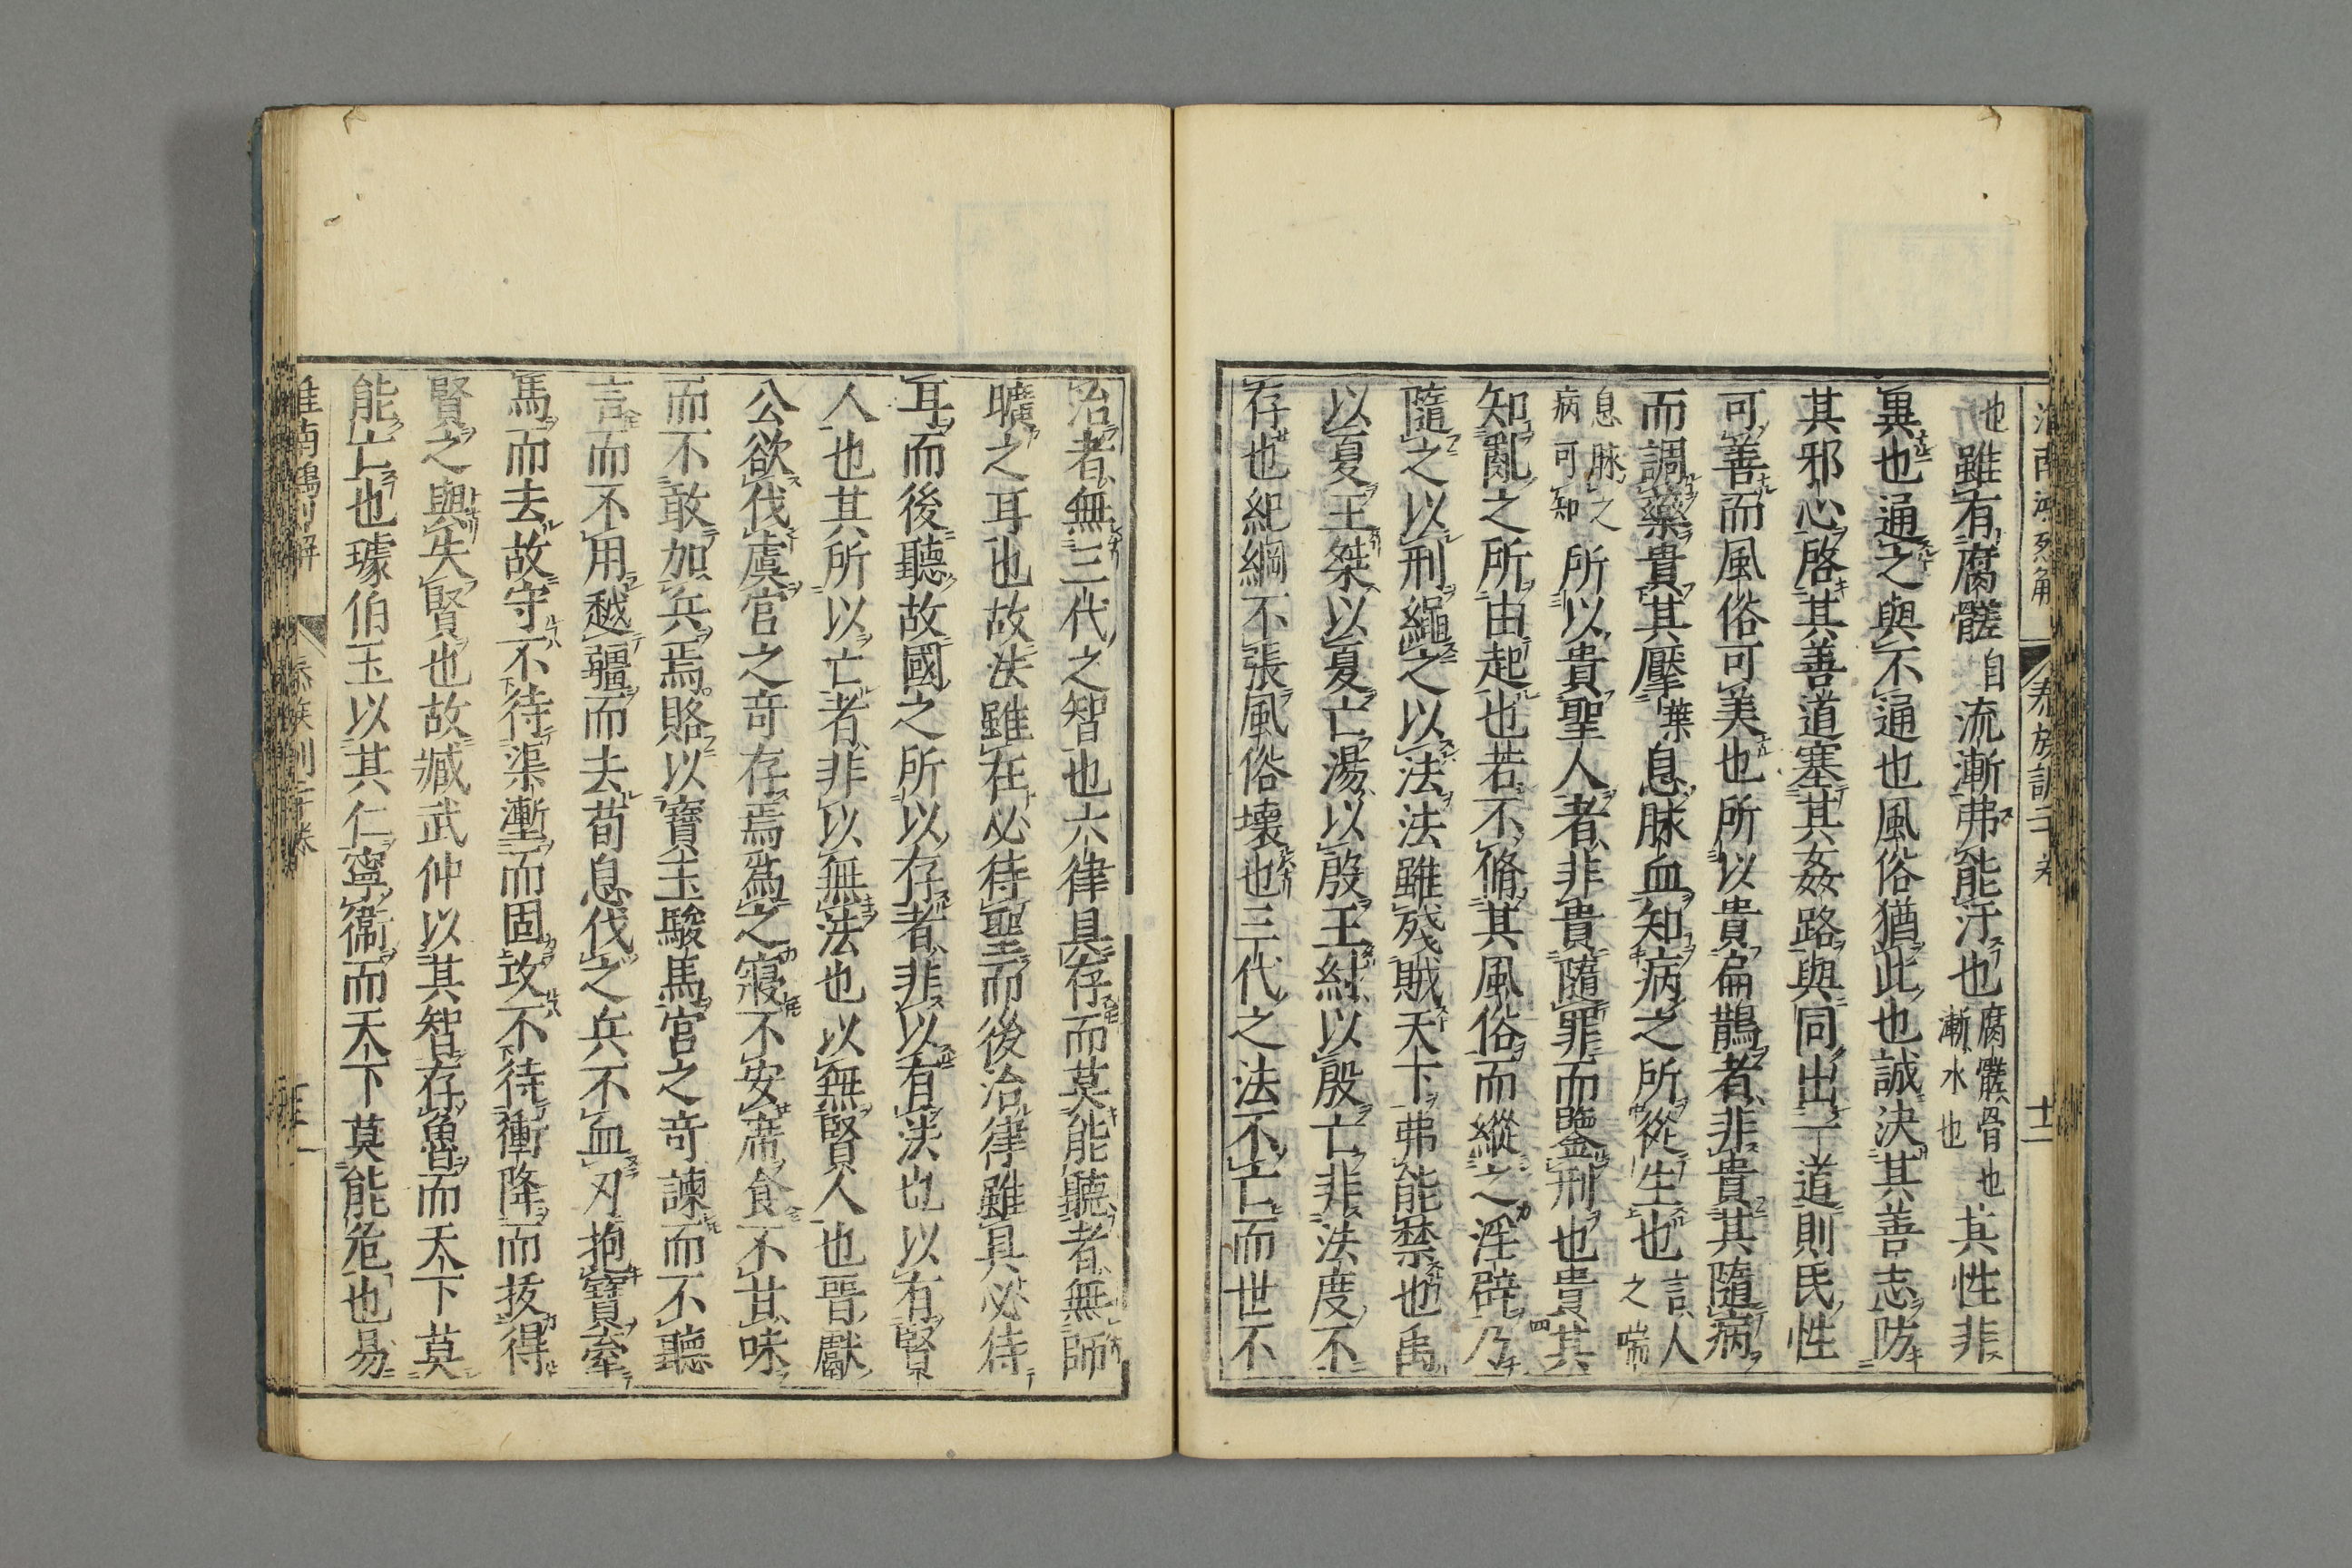 淮南鴻烈解 泰族訓二十卷 十二
也雖有腐髊自流漸弗能汙也腐髊骨也漸水也其性非
異也通之與不通也風俗猶此也誠決其善志防
其邪心啓其善道塞其姦路與同出一道則民性
可善而風俗可美也所以貴扁鵲者非貴其隨病
而調藥貴其擪葉息脉血知病之所從生也言人之喘
息脉之病可知所以貴聖人者非貴隨罪而鑒刑也貴其
知亂之所由起也若不脩其風俗而縱之淫辟乃
隨之以刑繩之以法法雖殘賊天下弗能禁也禹
以夏王桀以夏亡湯以殷王紂以殷亡非法度不
存也紀綱不張風俗壞也三代之法不亡而世不
治者無三代之智也六律具存而莫能聽者無師
曠之耳也故法雖在必待聖而後治律雖具必待
耳而後聽故國之所以存者非以有法也以有賢
人也其所以亡者非以無法也以無賢人也晉獻
公欲伐虞宮之奇存焉爲之寢不安席食不甘味
而不敢加兵焉賂以寶玉駿馬宮之奇諫而不聽
言而不用越疆而去荀息伐之兵不血刃抱寶牽
馬而去故守不待渠壍而固攻不待衝降而拔得
賢之與失賢也故臧武仲以其智存魯而天下莫
能亡也璩伯玉以其仁寧衞而天下莫能危也易
淮南鴻烈解 泰族訓二十卷